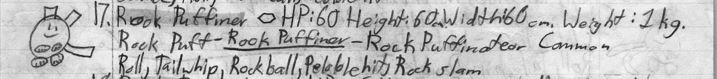 17. Rook Puffiner HP:60 Height:60cm Width:60cm. Weight:1kg.
Rock Puff-Rook Puffiner-Rock Puffinateor Common
Roll, Tailwhip, Rockball, Pebblehit, Rock slam